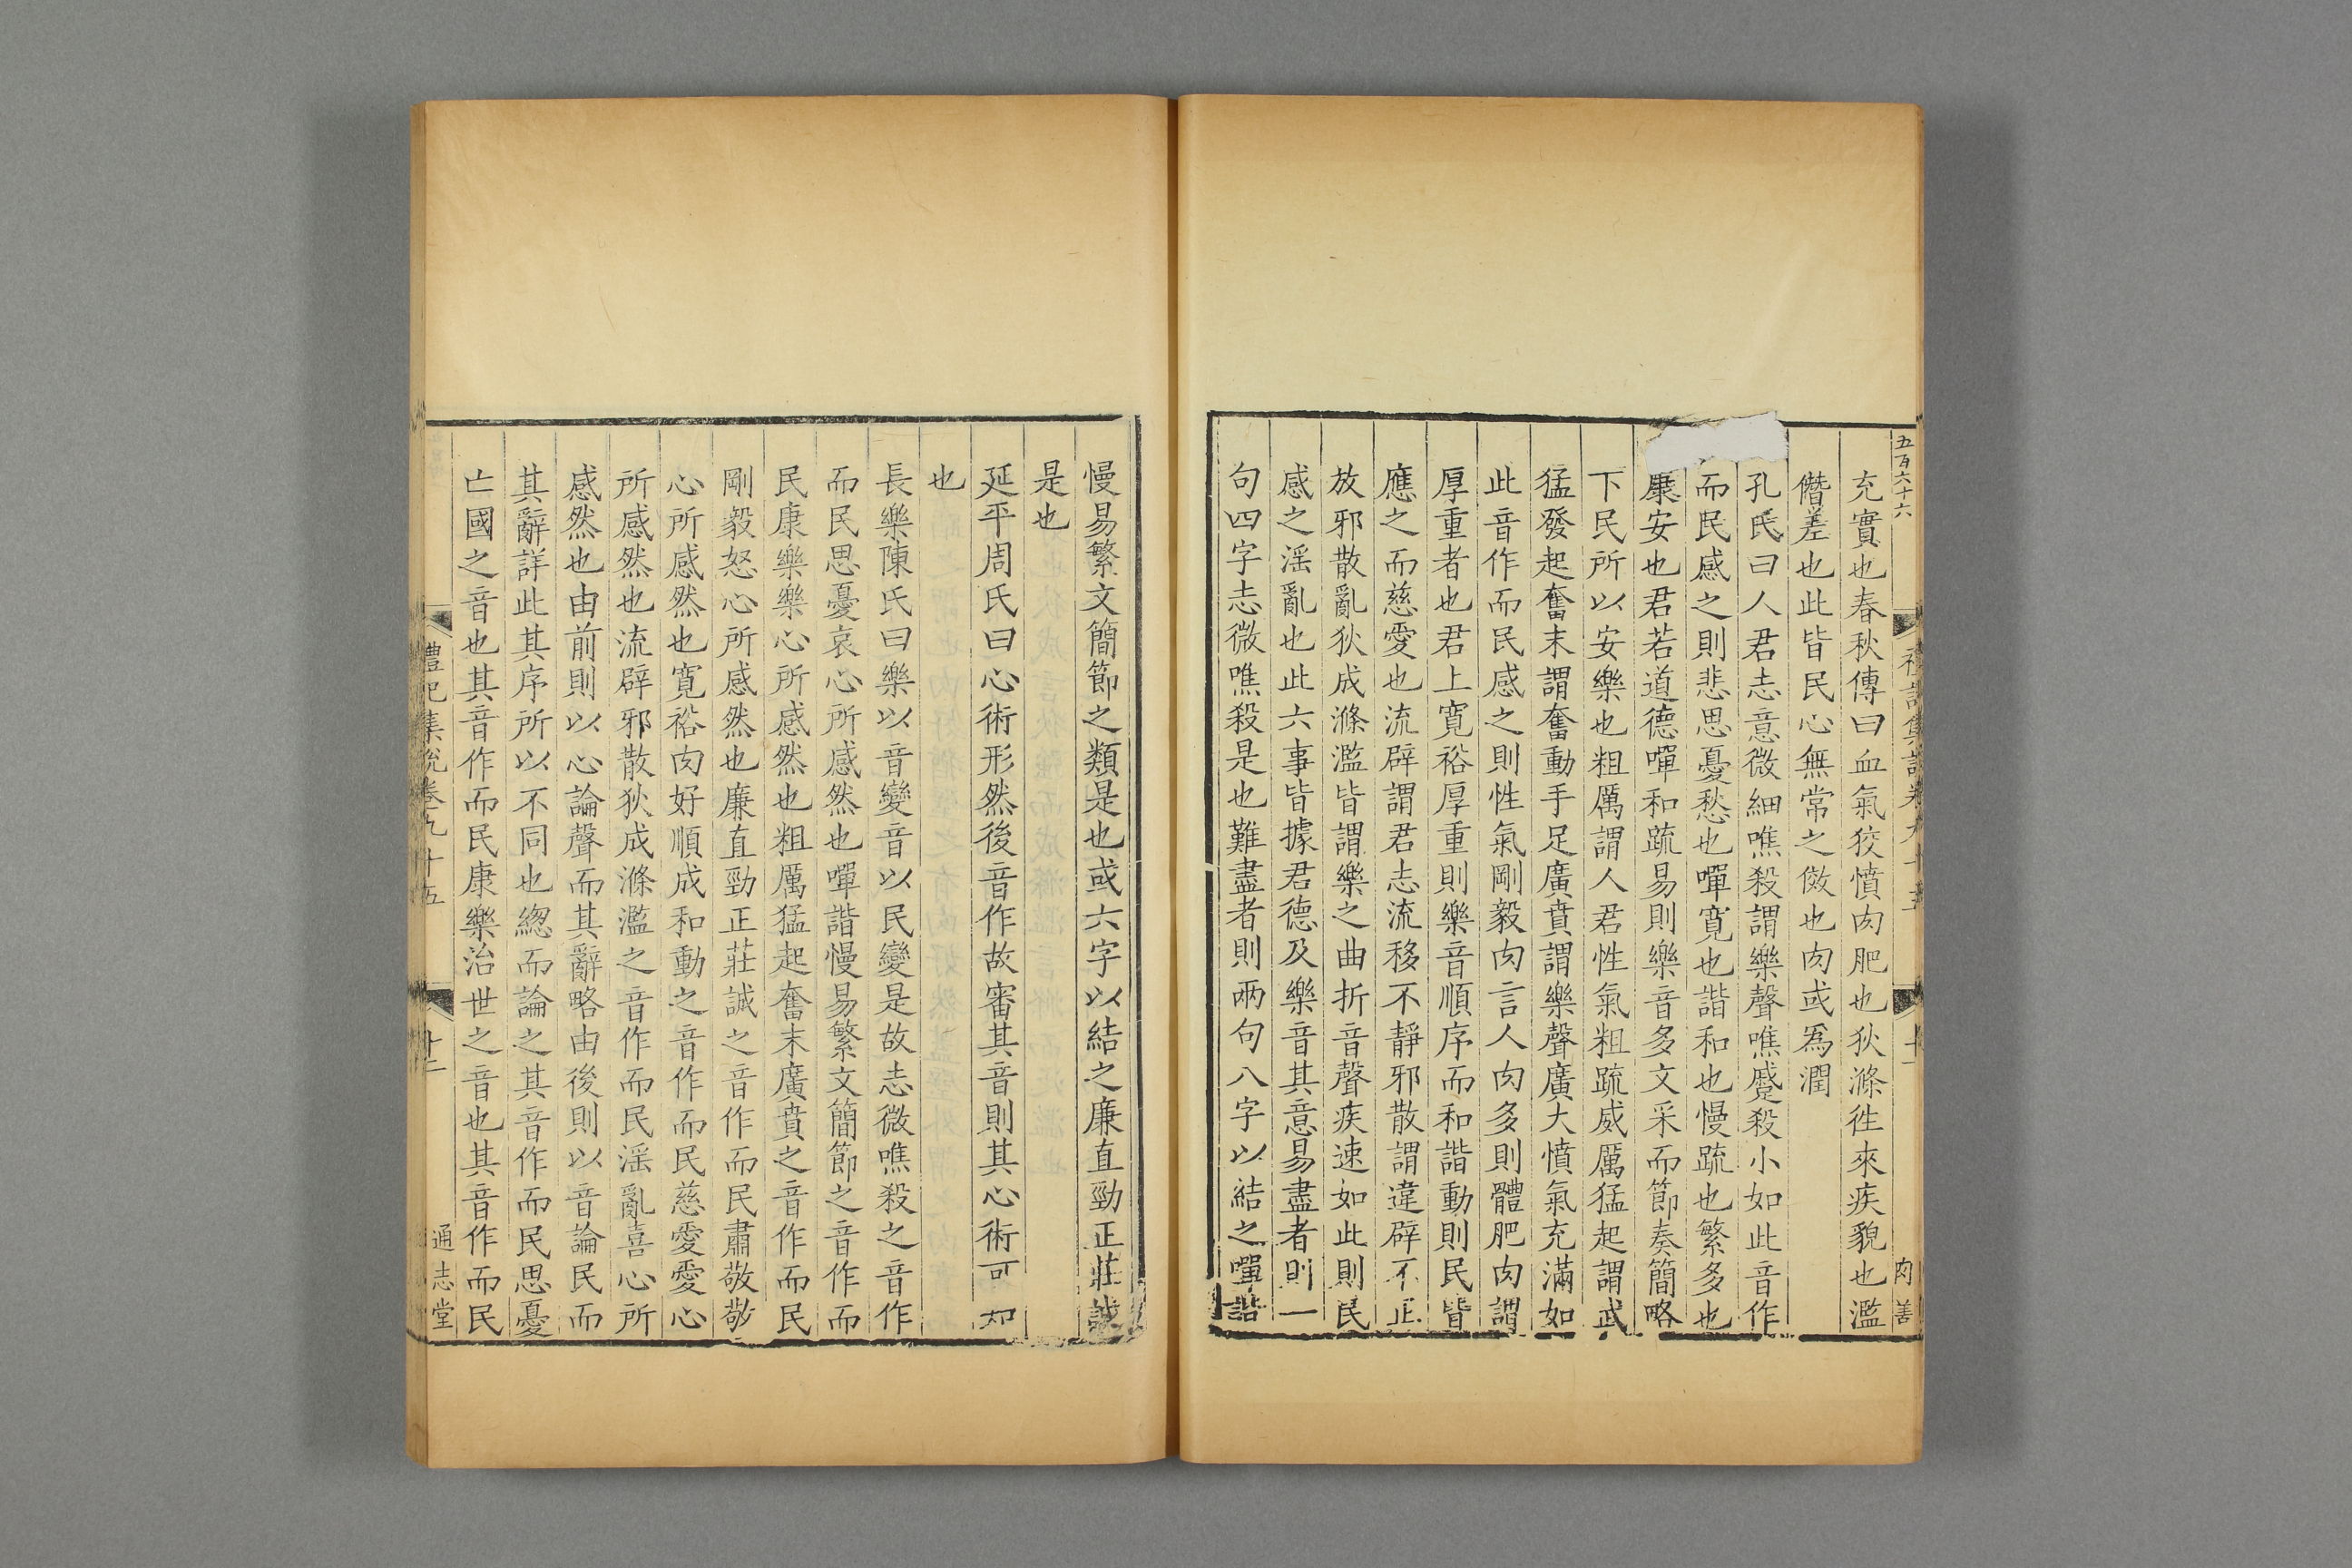 五百六十六
充實也春秋傳曰血氣狡憤肉肥也狄滌徃來疾貌也濫
僭差也此皆民心無常之傚也肉或為潤
孔氏曰人君志意微細噍殺謂樂聲噍蹙殺小如此音作
而民感之則悲思憂愁也嘽寛也諧和也慢疏也繁多也
康安也君若道德嘽和疏易則樂音多文采而節奏簡略
下民所以安樂也粗厲謂人君性氣粗疏威厲猛起謂武
猛發起奮末謂奮動手足廣賁謂樂聲廣大憤氣充滿如
此音作而民感之則性氣剛毅肉言人肉多則體肥肉謂
厚重者也君上寛裕厚重則樂音順序而和諧動則民皆
應之而慈愛也流辟謂君志流移不靜邪散謂違辟不正
放邪散亂狄成滌濫皆謂樂之曲折音聲疾速如此則民
感之淫亂也此六事皆據君德及樂音其意易盡者則一
句四字志微噍殺是也難盡者則兩句八字以結之嘽諧
慢易繁文簡節之類是也或六字以結之廉直勁正莊誠
是也
延平周氏曰心術形然後音作故審其音則其心術可知
也
長樂陳氏曰樂以音變音以民變是故志微噍殺之音作
而民思憂哀心所感然也嘽諧慢易繁文簡節之音作而
民康樂樂心所感然也粗厲猛起奮末廣賁之音作而民
剛毅怒心所感然也廉直勁正莊誠之音作而民肅敬敬
心所感然也寛裕肉好順成和動之音作而民慈愛愛心
所感然也流辟邪散狄成滌濫之音作而民淫亂喜心所
感然也由前則以心論聲而其辭略由後則以音論民而
其辭詳此其序所以不同也緫而論之其音作而民思憂
亡國之音也其音作而民康樂治世之音也其音作而民
禮記集說卷九十五
廿二
通志堂